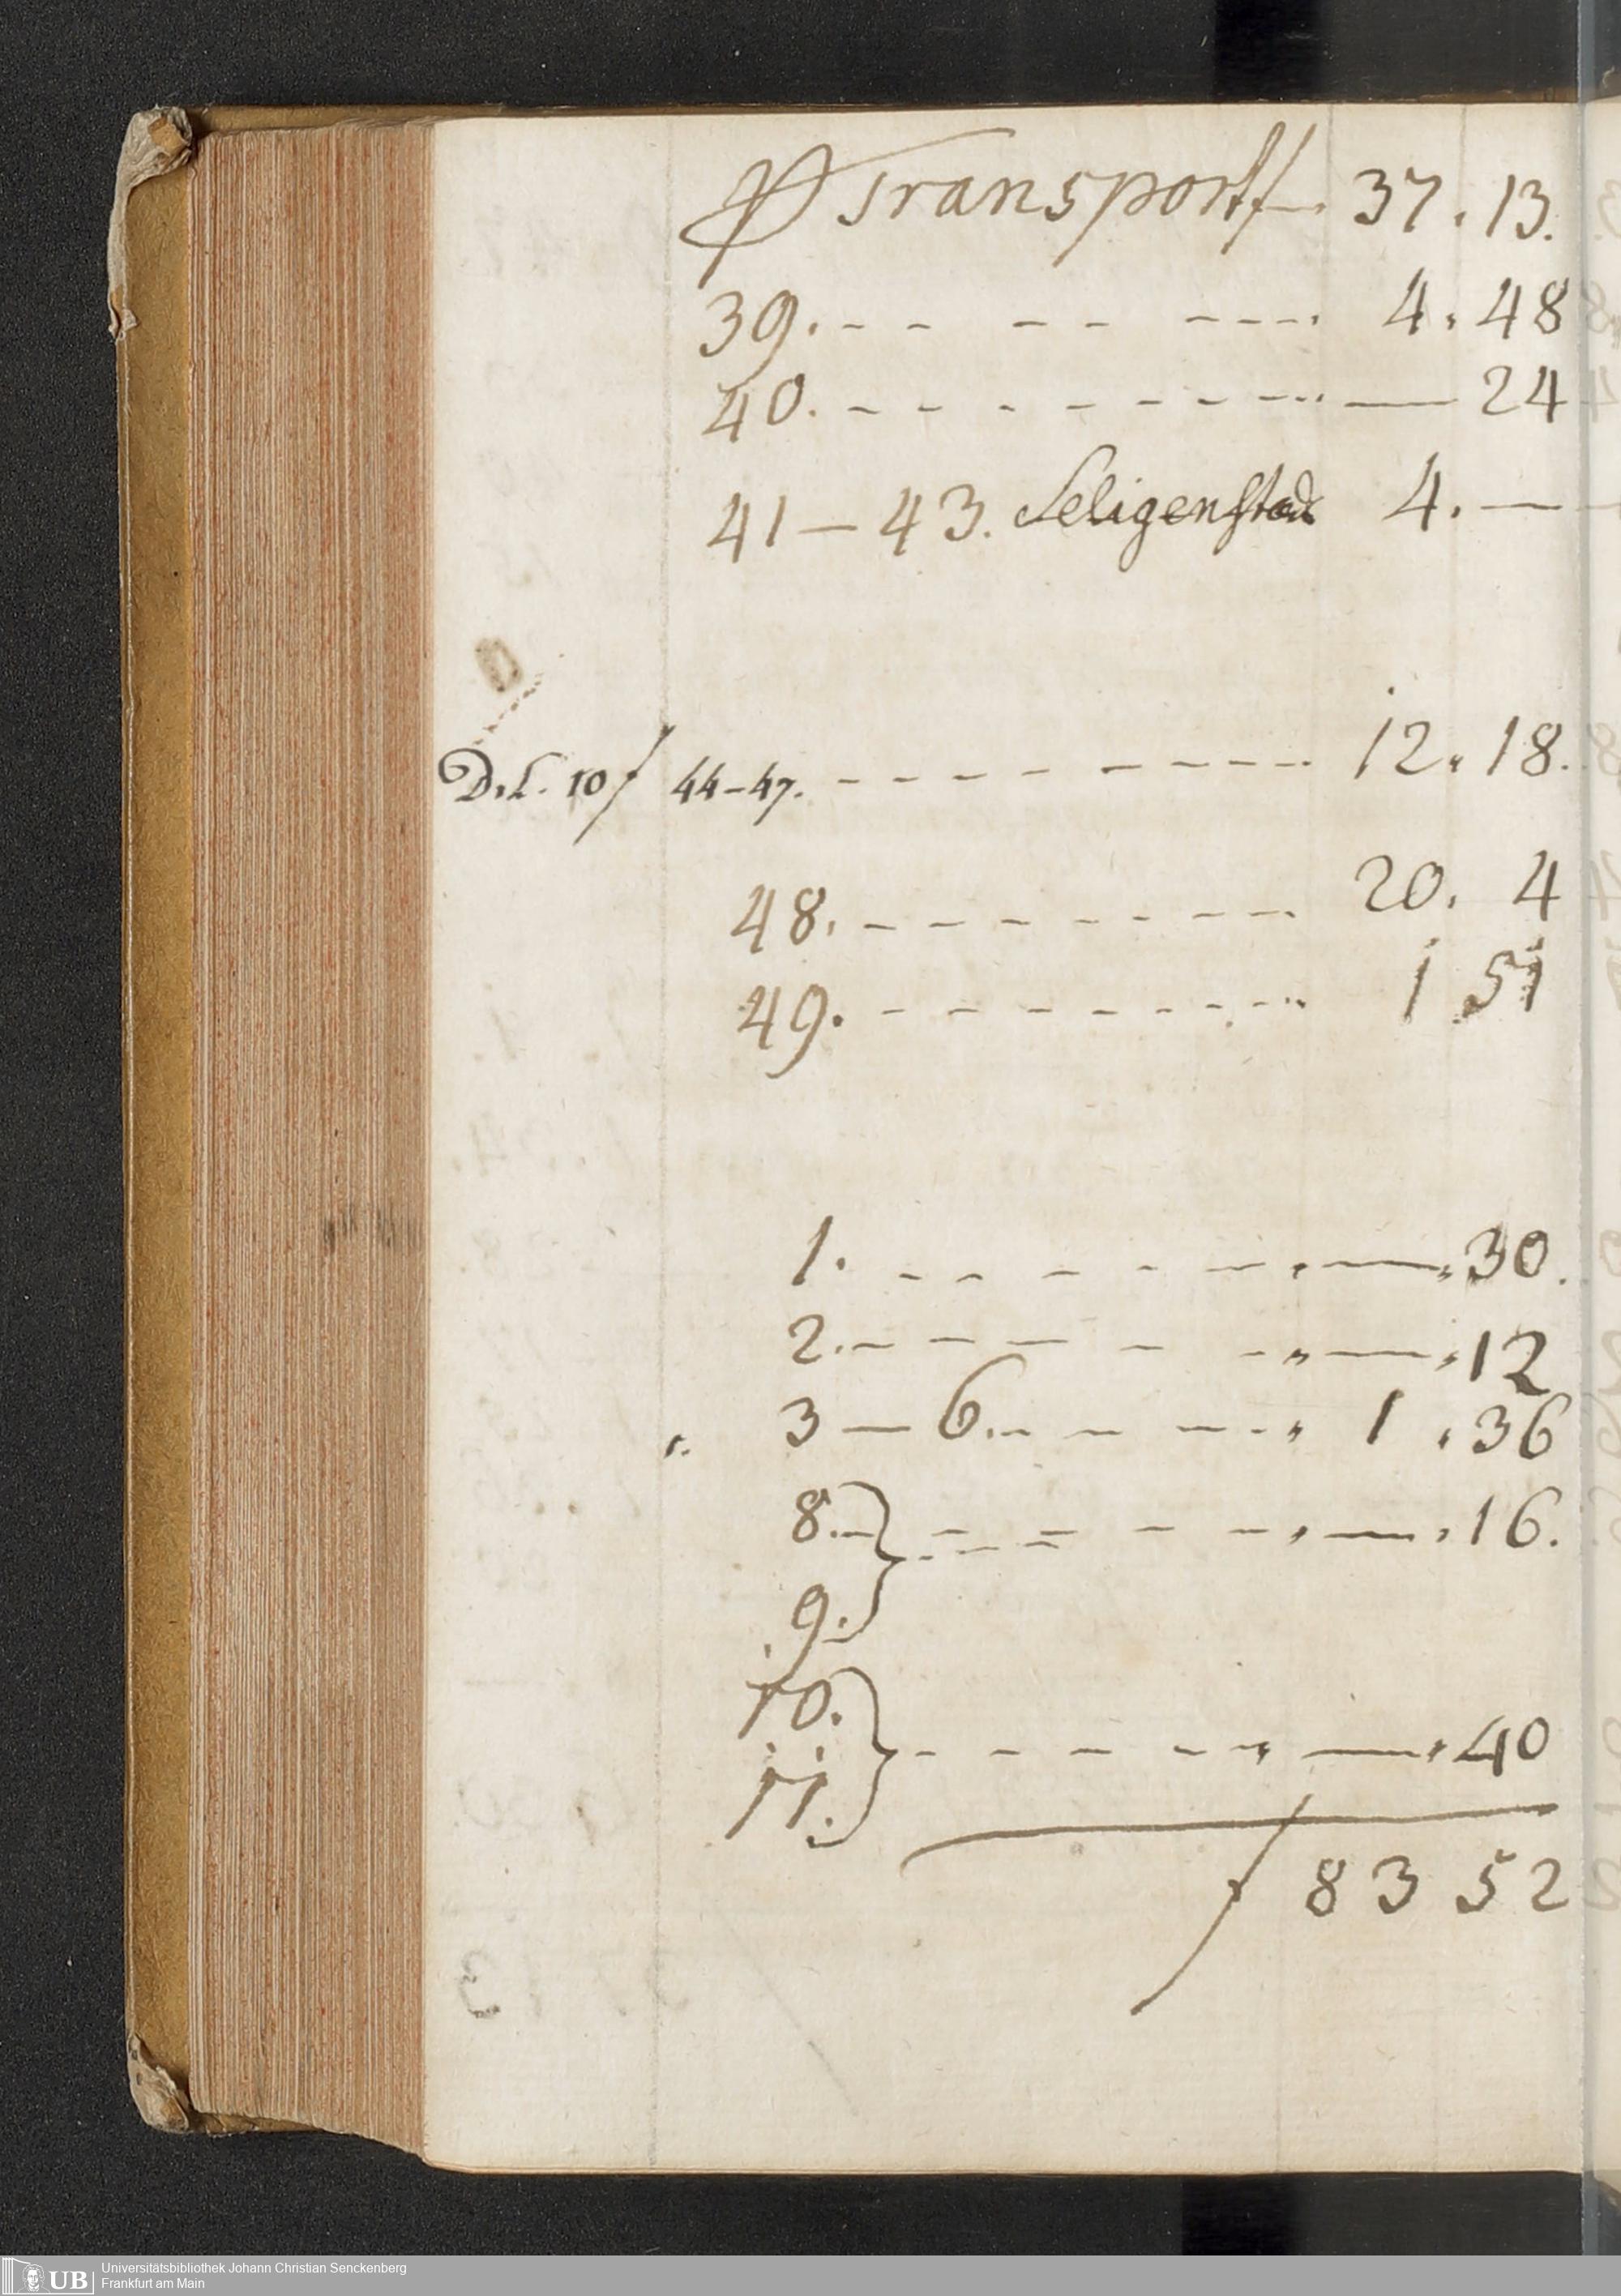 P Transport f 37. 13.
39. - - - - - - - . 4. 48
40. - - - - - - - - — 24
41 – 43. Seligenstad 4. —
D. L. 10 f 44–47. - - - - - - - - 12. 18.
48. - - - - - - - 20. 4
49. - - - - - - - 1 51
1. - - - - - . — „ 30.
2. - - - - - „ — „ 12
3 — 6. - - - - „ 1 „ 36
8. - - - - - „ — „ 16.
9.
10.
11. - - - - - „ — „ 40
f 83 52
Universitätsbibliothek Johann Christian Senckenberg
UB Frankfurt am Main